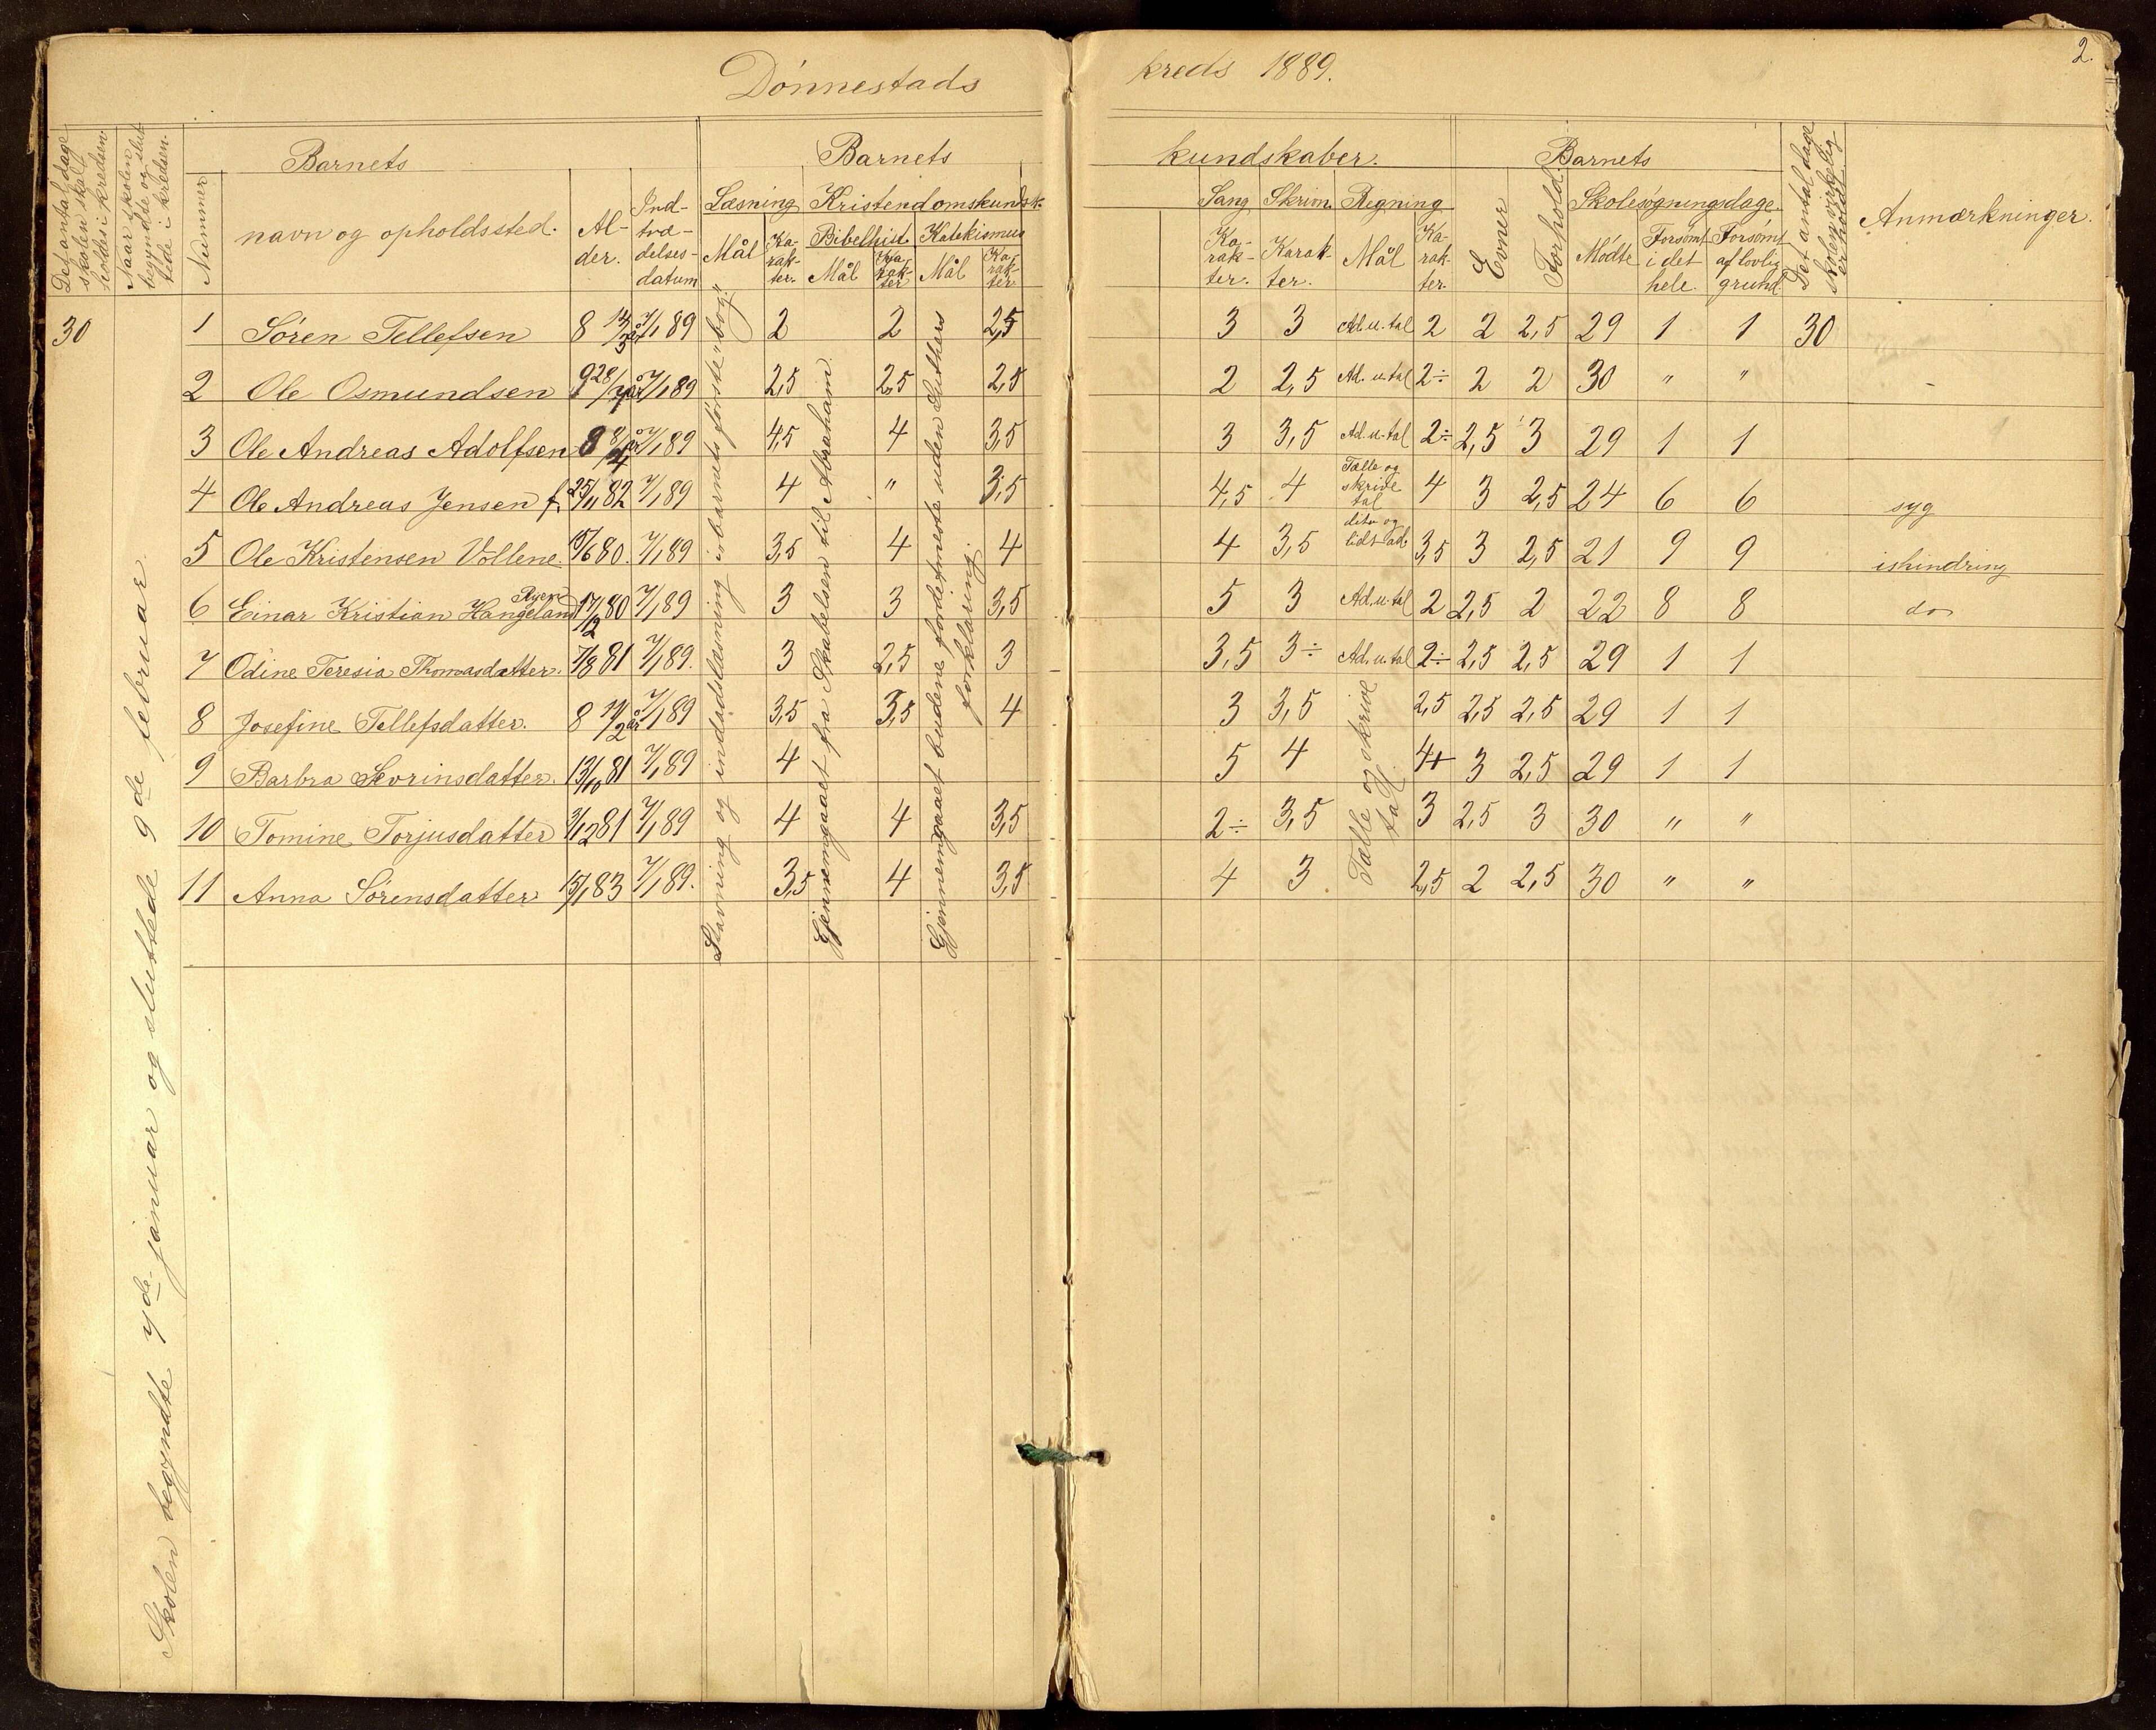 Dönnestads kreds 1889. 2.
Det antal dage skolen skal holdes i kredsen.
Naar skolen begyndte og sluttede i kredsen.
Nummer
Barnets navn og opholdssted.
Alder.
Indtrædelsesdatum
Barnets kundskaber.
Læsning Kristendomskundsk.
Mål Karakter. Bibelhist. Mål Karakter Katekismus Mål Karakter
Sang Skrivn. Regning
Karakter. Karakter. Mål Karakter.
Evner Forhold.
Barnets Skolesøgningsdage.
Mødte Forsømt i det hele. Forsømt af lovlig grund.
Det antal dage skolen virkelig er holdt
Anmærkninger.
30
Skolen begyndte 7de januar og sluttede 9de februar.
Stavning og indadslæsning i „barnets første bog."
Gjennemgaaet fra Skabelsen til Abraham.
Gjennemgaaet budene fordetmeste uden Luthers forklaring.
1 Sören Tellefsen 8 14/3 år 7/1 89 2 2 2,5 3 3 Ad. u. tal 2 2 2,5 29 1 1 30
2 Ole Osmundsen 9 28/7 år 7/1 89 2,5 2,5 2,5 2 2,5 Ad. u. tal 2÷ 2 2 30 " "
3 Ole Andreas Adolfsen 8 7/1 89 4,5 4 3,5 3 3,5 Ad. u. tal 2÷ 2,5 3 29 1 1
4 Ole Andreas Jensen f. 25/11 82 7/1 89 4 " 3,5 4,5 4 Tælle og skrive tal 4 3 2,5 24 6 6 syg
5 Ole Kristensen Vollene. 80. 7/1 89 3,5 4 4 4 3,5 dito og lidt ad. 3,5 3 2,5 21 9 9 ishindring
6 Einar Kristian Hangeland Ryen 17/12 80 7/1 89 3 3 3,5 5 3 Ad. u. tal 2 2,5 2 22 8 8 do
7 Odine Teresia Thomasdatter. 7/8 81 7/1 89. 3 2,5 3 3,5 3÷ Ad. u. tal 2÷ 2,5 2,5 29 1 1
8 Josefine Tellefsdatter. 8 år 7/1 89 3,5 3,5 4 3 3,5 Tælle og skrive tal. 2,5 2,5 2,5 29 1 1
9 Barbra Sevrinsdatter. 13/10 81 7/1 89 4 5 4 4+ 3 2,5 29 1 1
10 Tomine Torjusdatter 81 7/1 89 4 4 3,5 2÷ 3,5 3 2,5 3 30 " "
11 Anna Sörensdatter 15/1 83 7/1 89. 3,5 4 3,5 4 3 2,5 2 2,5 30 " "